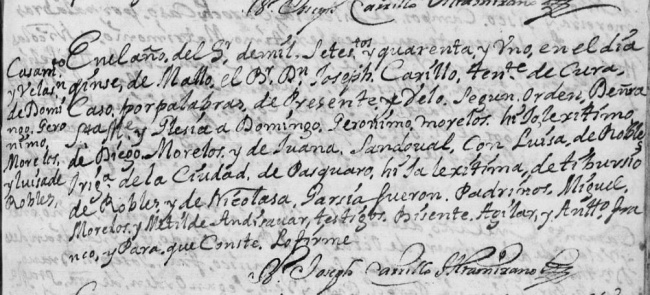 Br Joseph Carrillo Altamirano
Casamto
y Velasn
de Domi
ngo, Gero
nimo,
Morelos,
y luisa de
Robles,
En el año, del Sr, de mil, Setetos y quarenta, y Vno, en el dia
quinse, de Mallo, el Br, Dn Joseph, Carillo, tente de Cura,
Caso, por palabras, de Presente, y Velo, Segun, Orden, De nra
Sta Me y Ylesia a Domingo, Geronimo, morelos, hijo, lexitimo,
de Diego, Morelos, y de Juana, Sandoval, Con Luisa, de Robles
de la Ciudad, de Pasquaro, hija lexitima, de tibursio
de Robles, y de Nicolasa, Garsia, fueron, Padrinos, Miguel,
Morelos, y Matilde, Andisavar, testigos, Bisente, Agilar, y Antto, fra
nco, y Para, que Conste, Lo firme
Br, Joseph Carrillo Altamirano